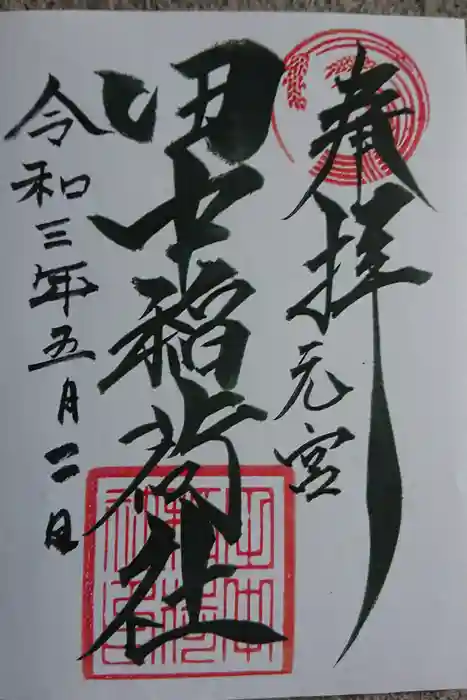 奉拝
元宮
田中稲荷社
令和三年五月二日